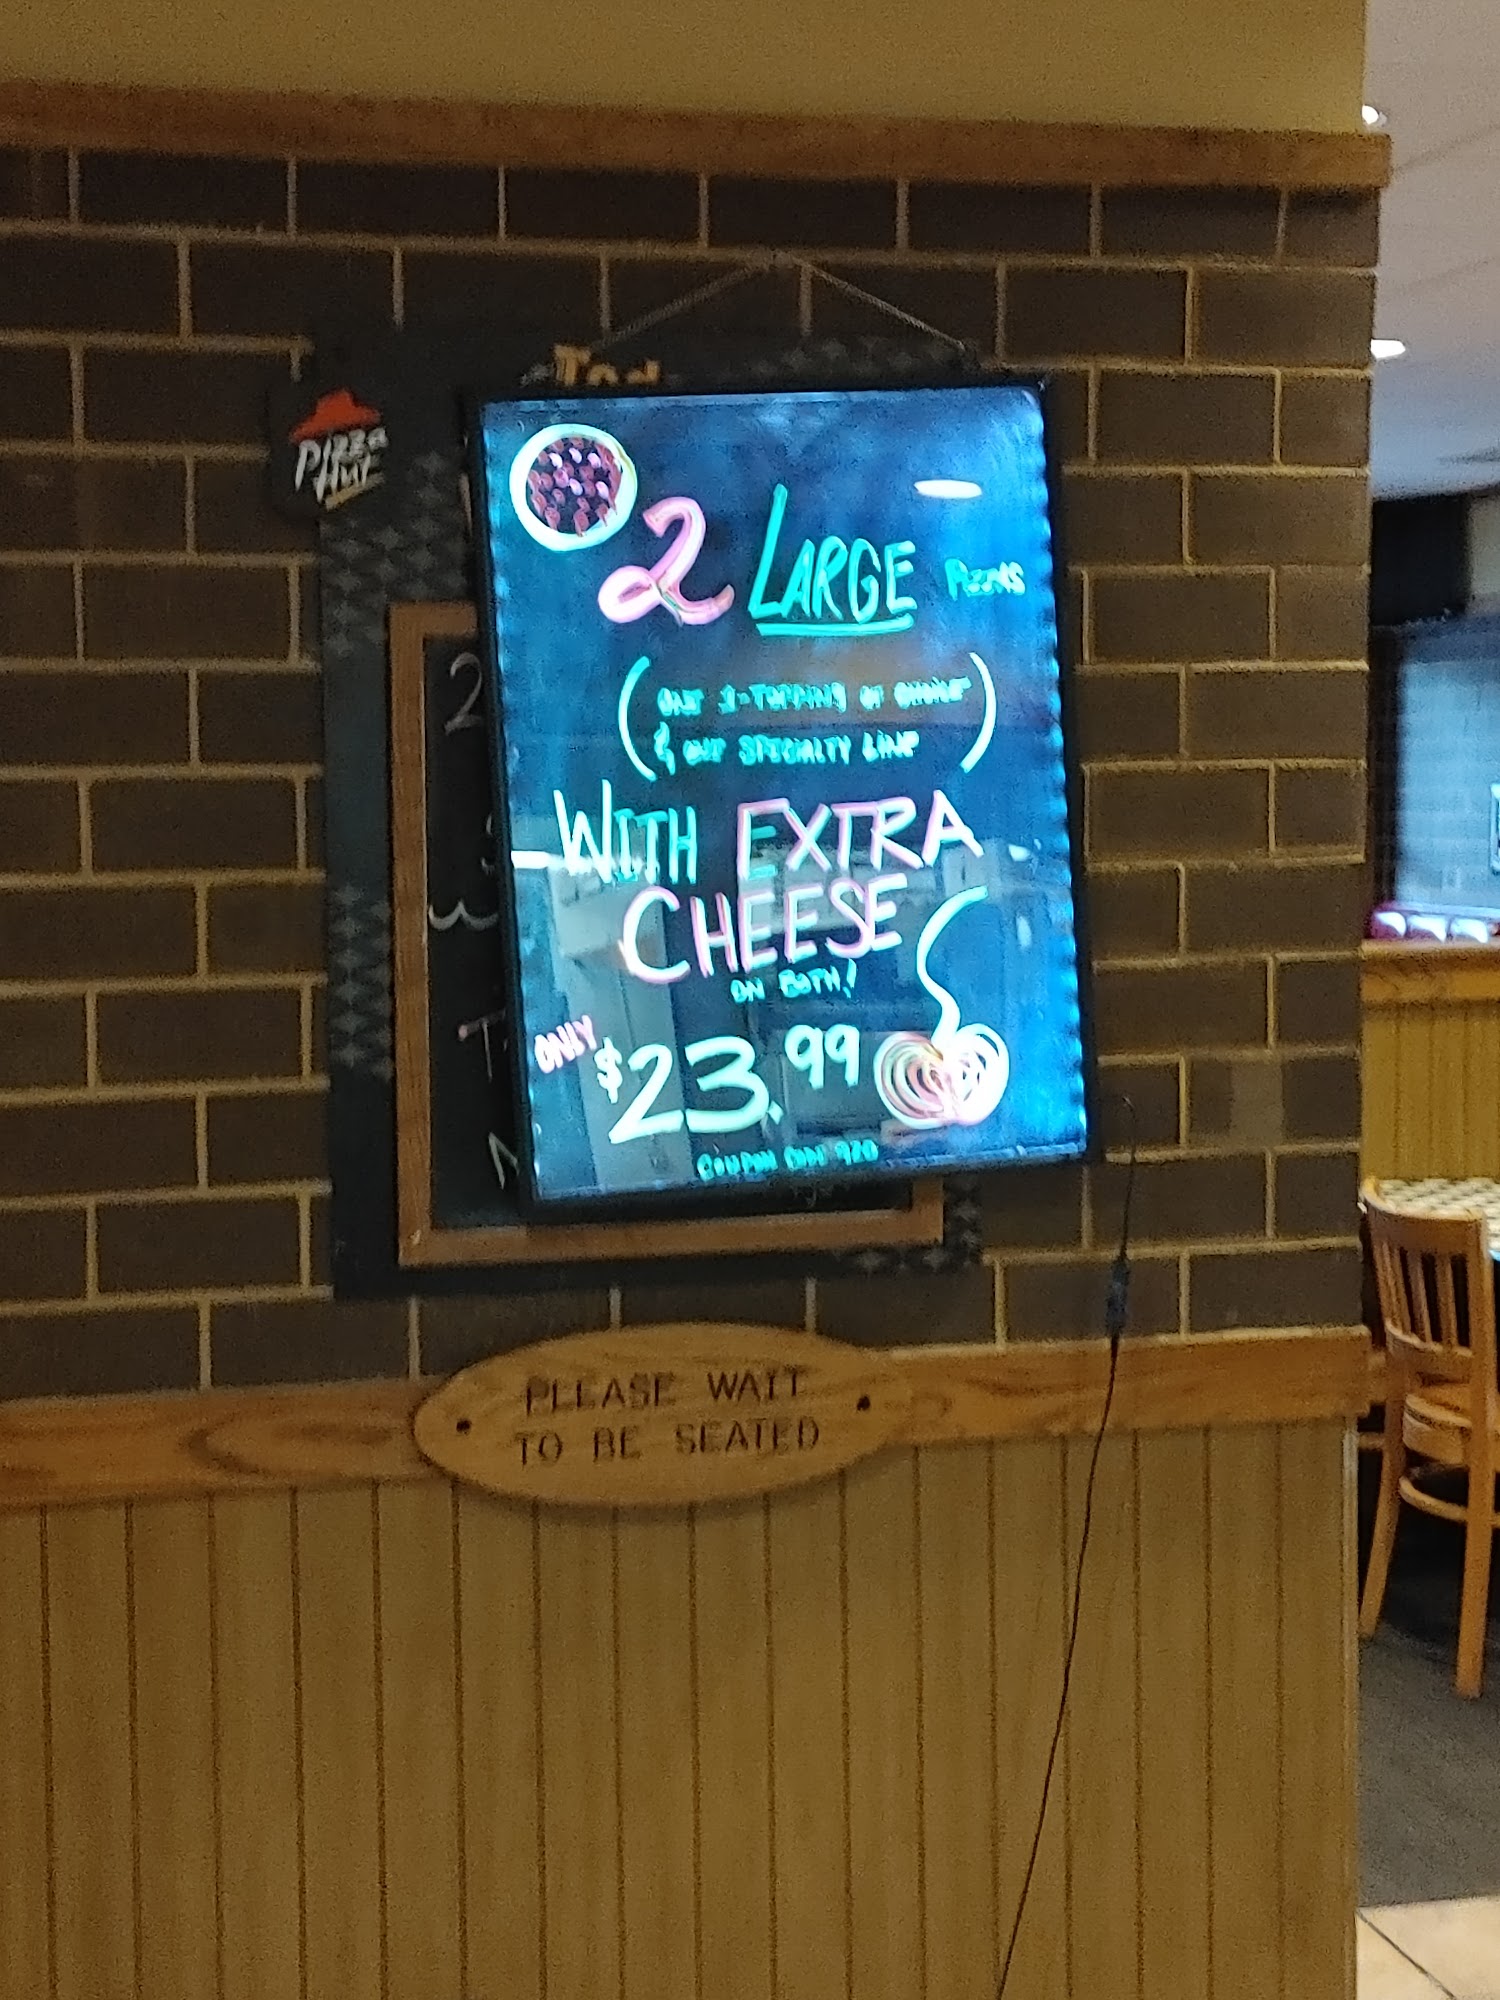 Pizza
Hut
2 LARGE PIZZAS
(ONE 2-TOPPING OF CHOICE
& ONE SPECIALTY LINE)
WITH EXTRA
CHEESE
ON BOTH!
ONLY
$23.99
COUPON CODE
PLEASE WAIT
TO BE SEATED